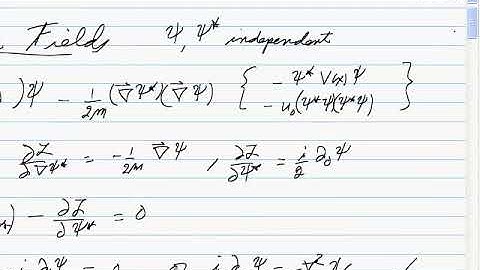 Fields ψ, ψ* independent
)ψ - 1/2m (∇⃗ψ*)(∇⃗ψ) { - ψ* V(x) ψ
- u₀(ψ*ψ)(ψ*ψ) }
∂ℒ/∂∇ψ* = - 1/2m ∇⃗ψ , ∂ℒ/∂ψ* = i/2 ∂₀ψ
) - ∂ℒ/∂ψ* = 0